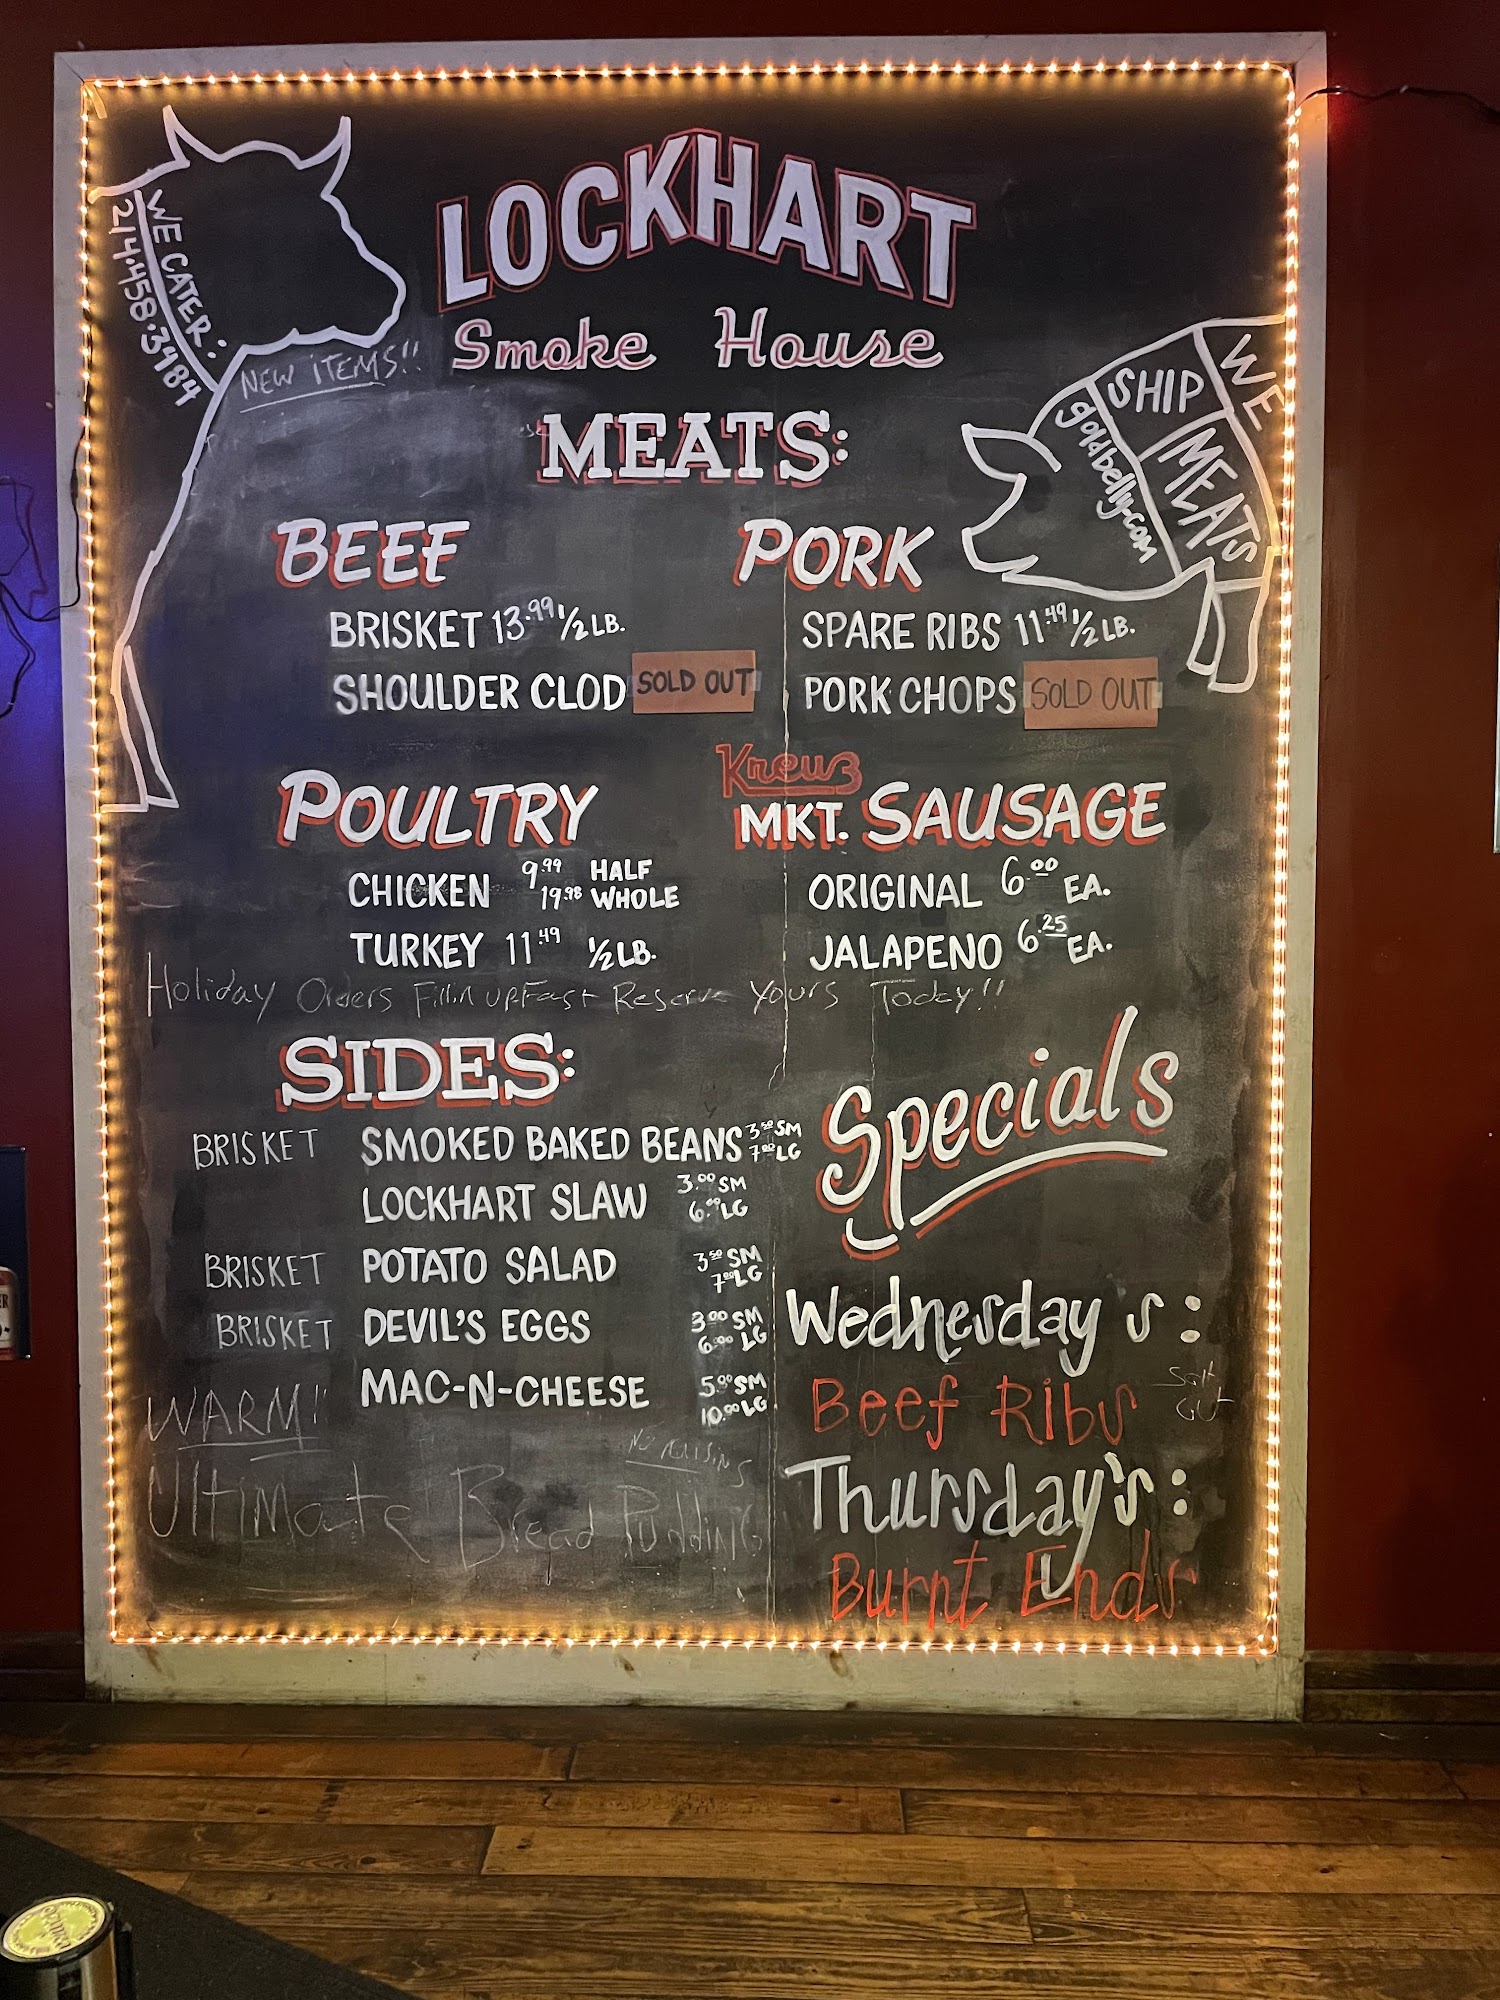 LOCKHART
Smoke House
WE CATER:
214.458.3484
NEW iTEMS!!
WE
SHIP
MEATS
goldbelly.com
MEATS:
BEEF
BRISKET 13.99 1/2 LB.
SHOULDER CLOD SOLD OUT
PORK
SPARE RIBS 11.49 1/2 LB.
PORK CHOPS SOLD OUT
POULTRY
CHICKEN 9.99 HALF
19.98 WHOLE
TURKEY 11.49 1/2 LB.
Kreuz
MKT. SAUSAGE
ORIGINAL 6.00 EA.
JALAPENO 6.25 EA.
Holiday Orders Fillin up Fast Reserve Yours Today!!
SIDES:
BRISKET SMOKED BAKED BEANS 3.50 SM
7.00 LG
LOCKHART SLAW 3.00 SM
6.00 LG
BRISKET POTATO SALAD 3.50 SM
7.00 LG
BRISKET DEVIL'S EGGS 3.00 SM
6.00 LG
MAC-N-CHEESE 5.00 SM
10.00 LG
WARM!!
NO RAISINS
Ultimate Bread Pudding
Specials
Wednesday s:
Beef Ribs
Thursday's:
Burnt Ends